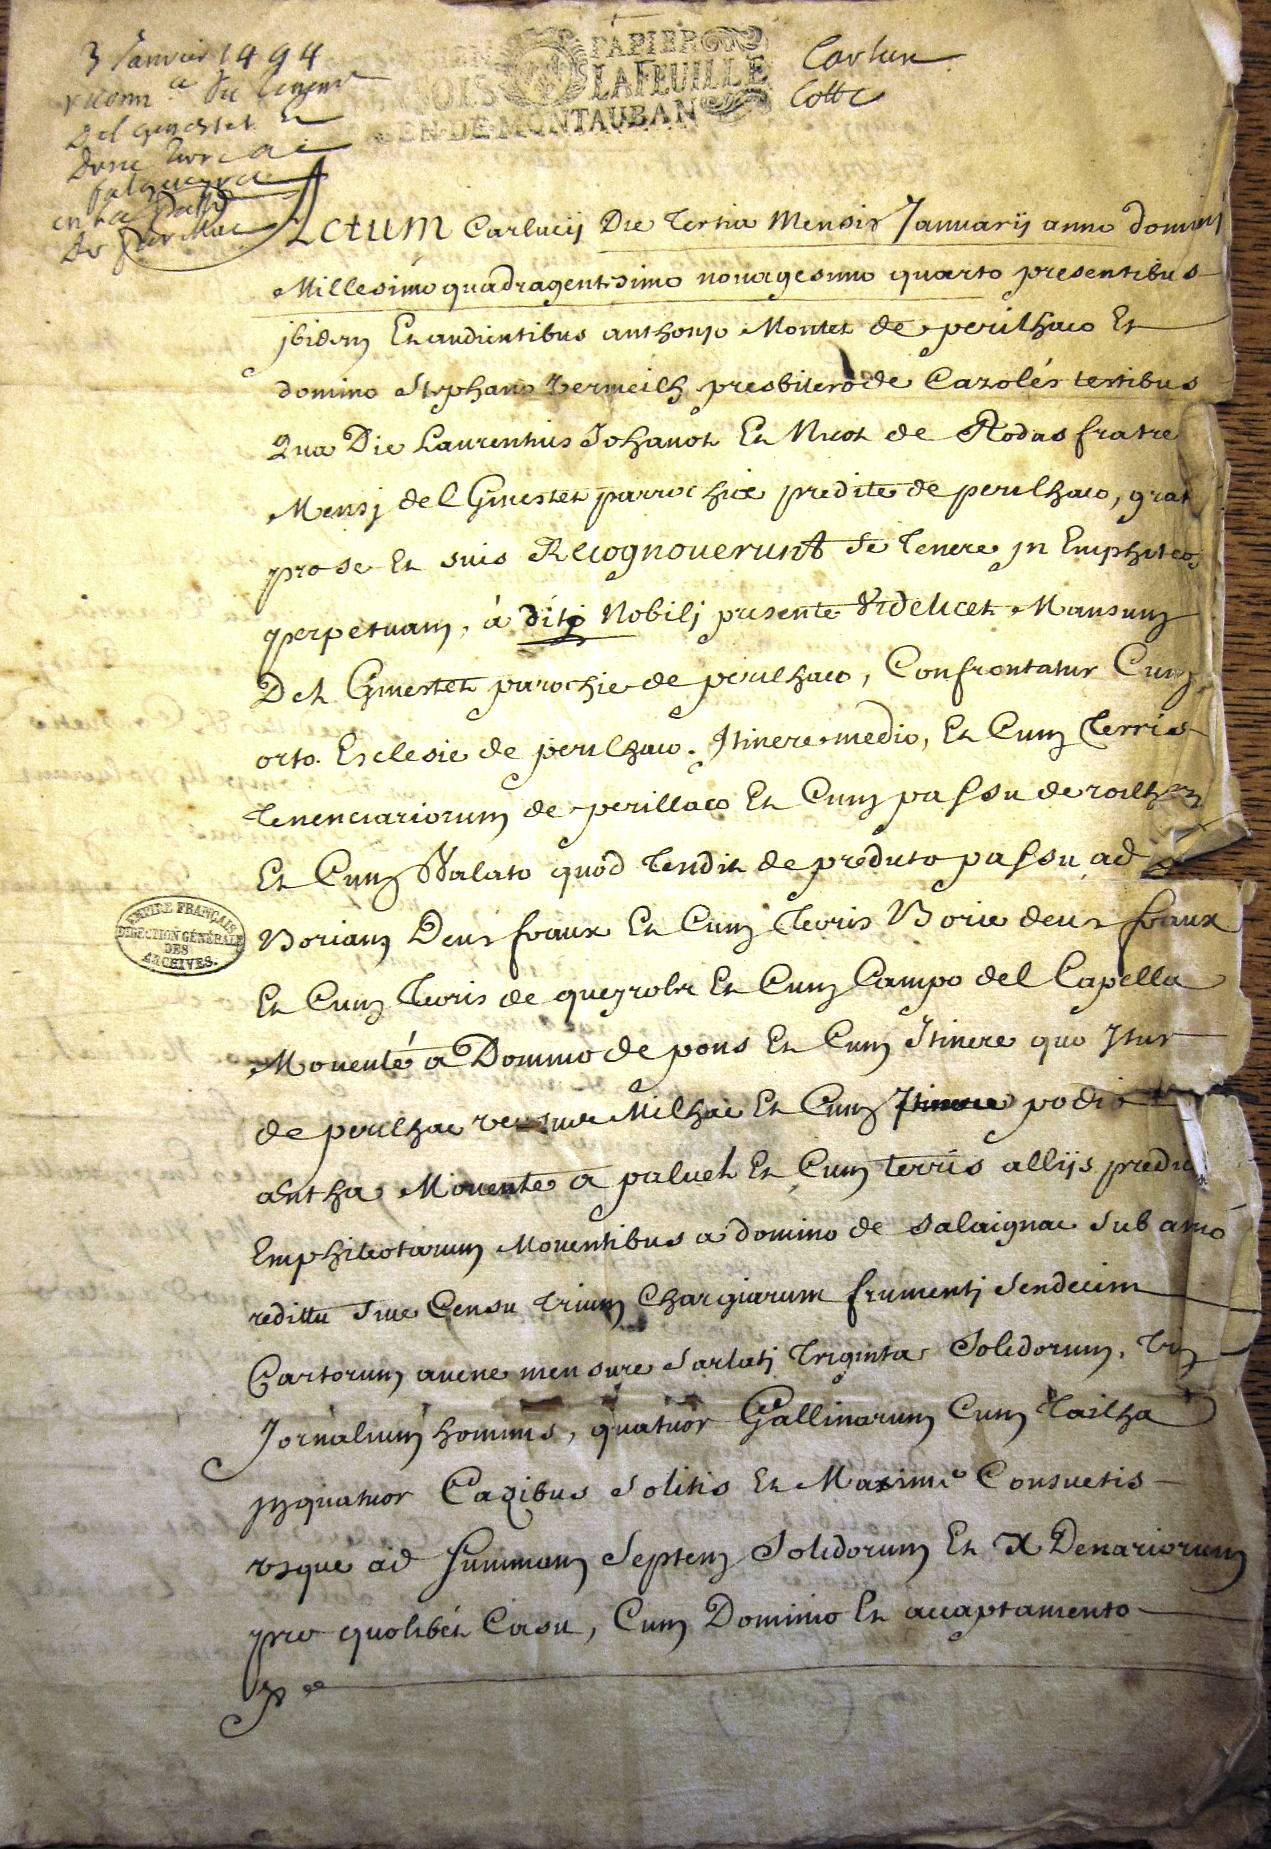 3 Janvier 1494
du
del genestet
en la
de
PAPIER
LA FEUILLE
EN·DE·MONTAUBAN
Carlux
Cotte
Actum Carlucij Die tertia Mensis Januarij anno domini
Millesimo quadragentesimo nonagesimo quarto presentibus
jbidem Et audientibus anthonyo Montet de perilhaco Et
domino Stephano Vermeilh presbitero de Cazolés testibus
Qua Die Laurentius Johanot Et Nicot de Rodas fratre
Mensj del Ginestet parrochie predite de perilhaco, grat
pro se Et suis Recognoverunt se tenere jn Emphiteos
perpetuam, á dito Nobilj presente videlicet Mansum
Del Ginestet parochie de perilhaco, Confrontatur Cum
orto Esclesie de perilhaco. Itinere medio, Et Cum terris
tenenciariorum de perillaco Et Cum passu de roilh
Et Cum Valato quod tendit de preduto passu ad
Boriam Deus fraux Et Cum terris Borie deus fraux
Et Cum terris de queyrolz Et Cum Campo del Capella
Movente a Domino de pons Et Cum Itinere quo Itur
de perilhac versus Milhac Et Cum podio
antha Movente a paluel Et Cum terris allijs predic
Emphiteotarum Moventibus a domino de Salaignac Sub anno
redittu Sive Censu trium Chargiarum frumentj Sendecim
Cartorum avene mensure Sarlatj triginta Solidorum, tri
Jornalium hominis, quatuor Gallinarum Cum tailha
jn quatuor Casibus Solitis Et Maxime Consuetis
usque ad summam Septem Solidorum Et X Denariorum
pro quolibét Casu, Cum Dominio Et accaptamento
EMPIRE FRANÇAIS
DIRECTION GÉNÉRALE
DES
ARCHIVES.